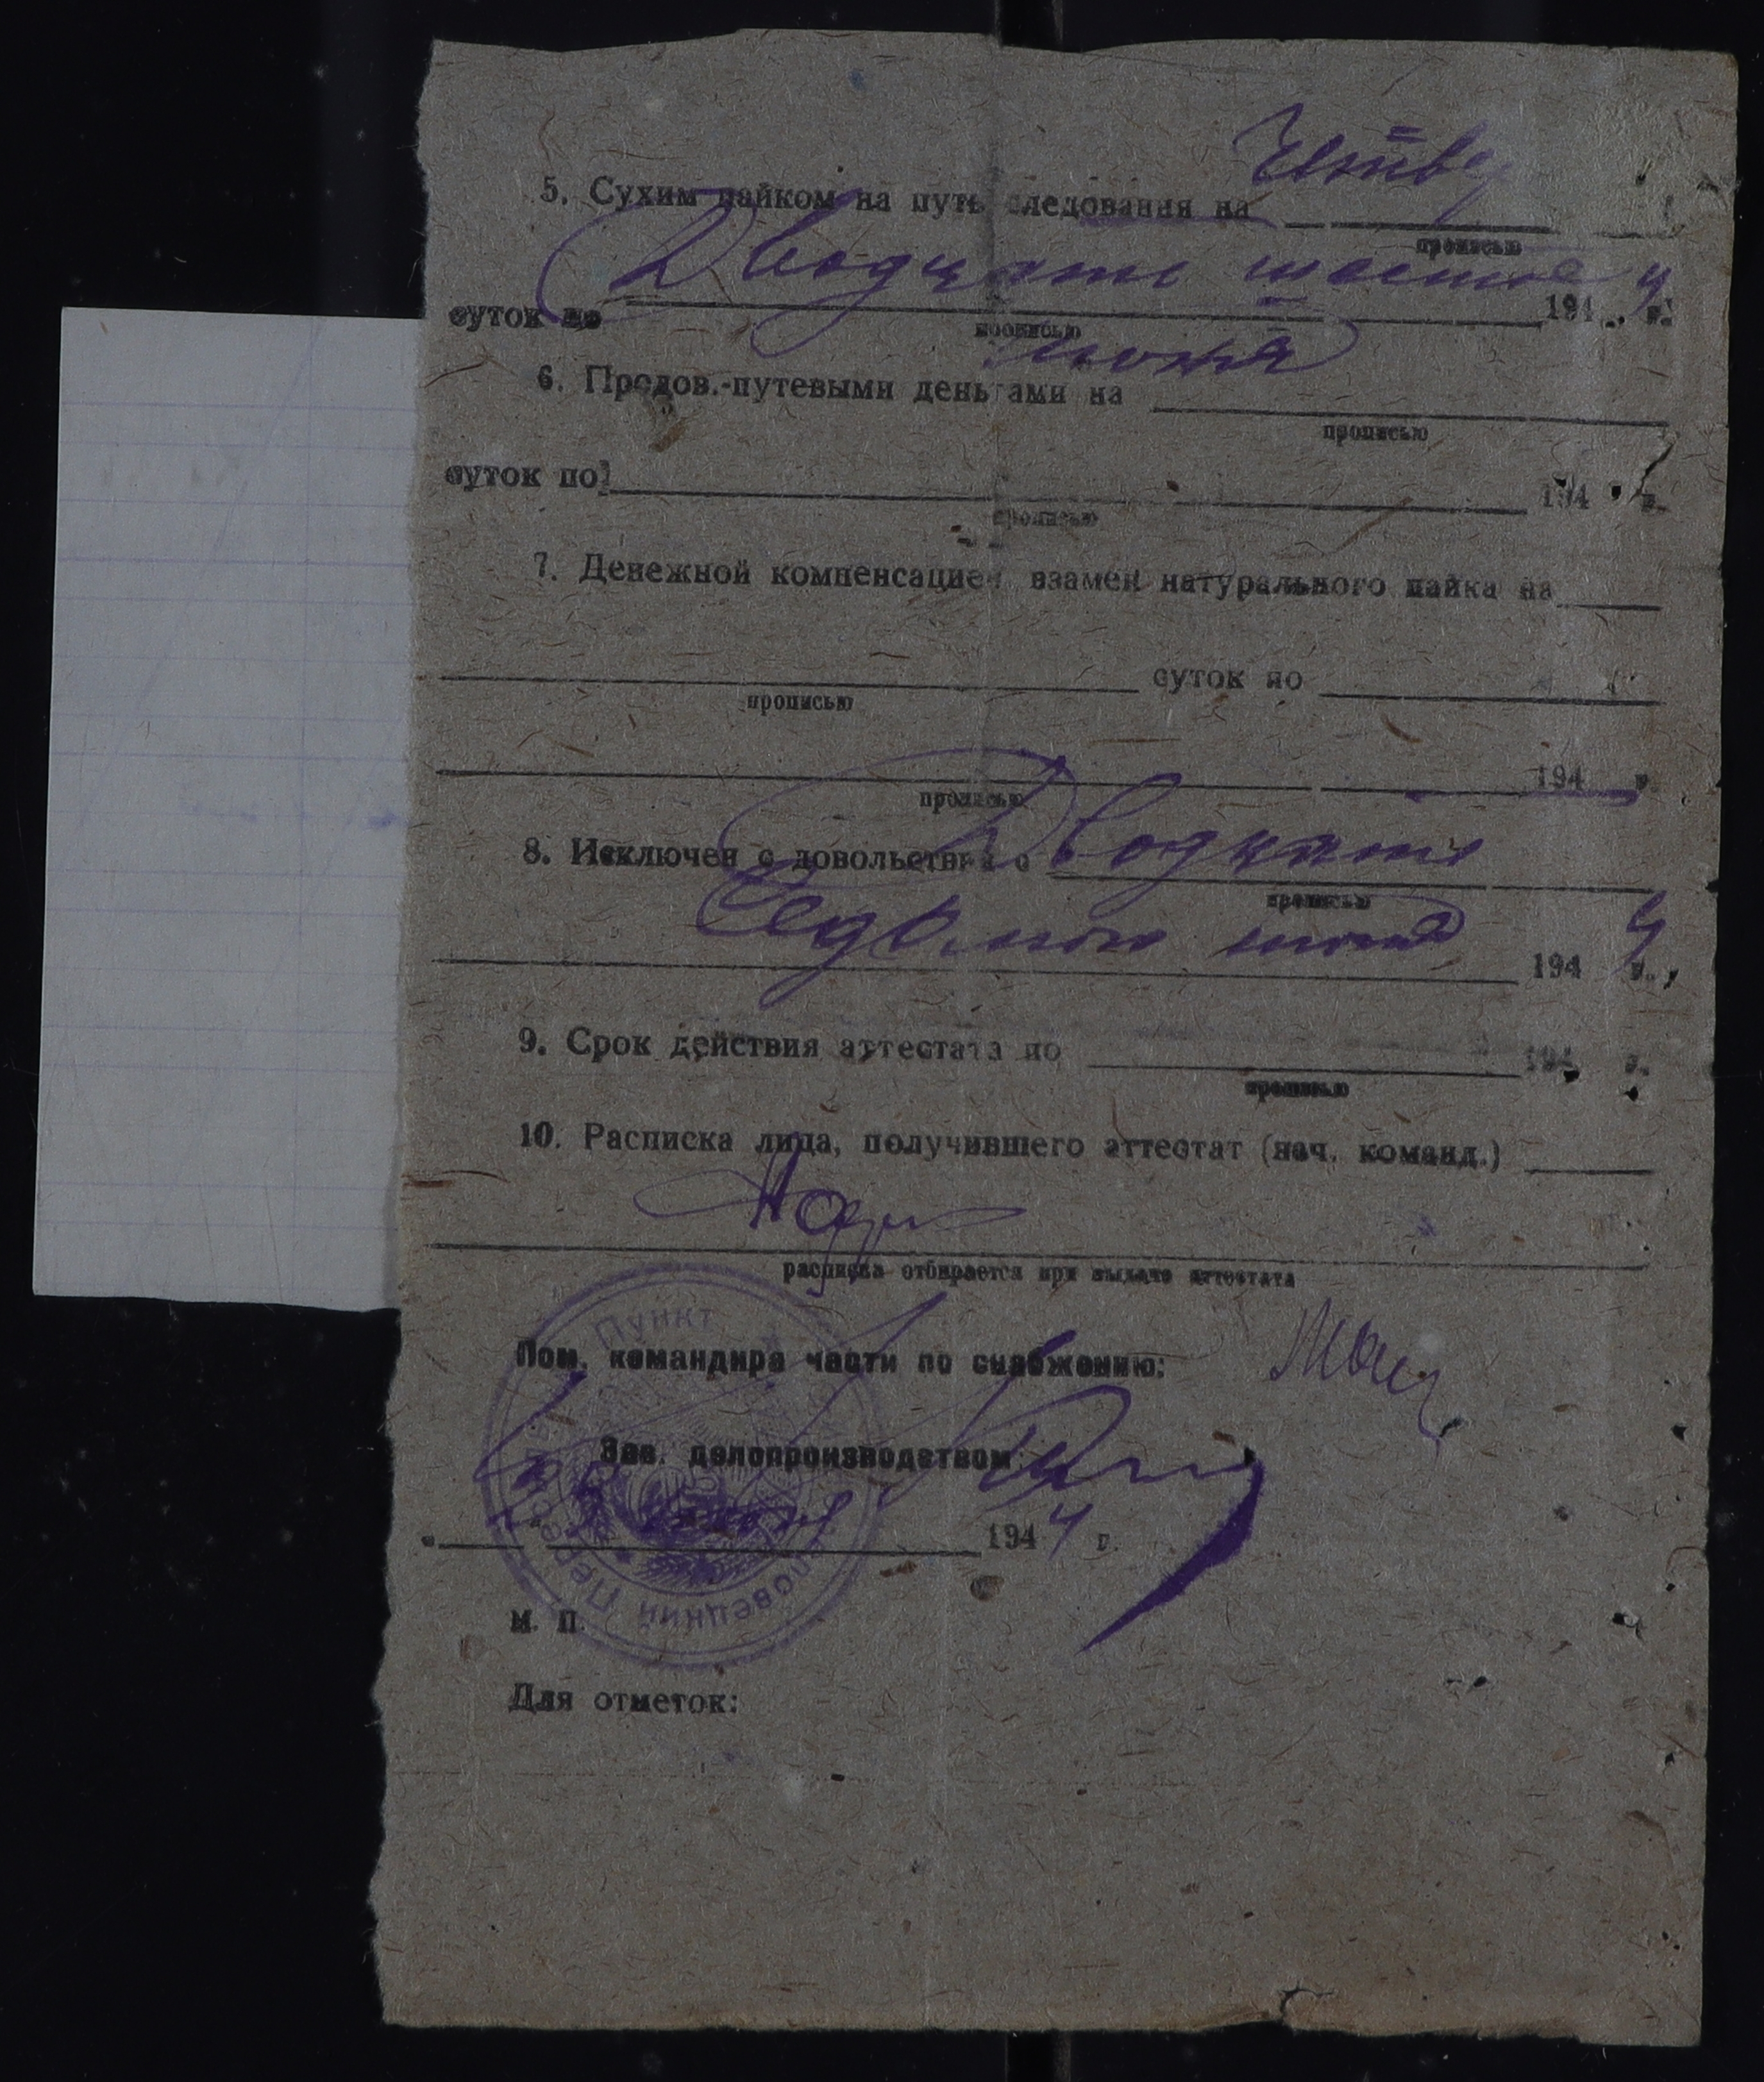 5. Сухим пайком на путь следования на
прописью
Двадцать шестое
суток по 1944 г.
прописью
июня
6. Продов.-путевыми деньгами на
прописью
суток по 194 г.
прописью
7. Денежной компенсацией взамен натурального пайка на
суток по
прописью
194 г.
прописью
8. Исключен с довольствия с Двадцать
прописью
Седьмого июня 1944 г.,
9. Срок действия аттестата по 194 г.
прописью
10. Расписка лица, получившего аттестат (нач. команд.)
расписка отбирается при выдаче аттестата
Пункт
Пом. командира части по снабжению:
Зав. делопроизводством
1944 г.
М. П.
Для отметок: